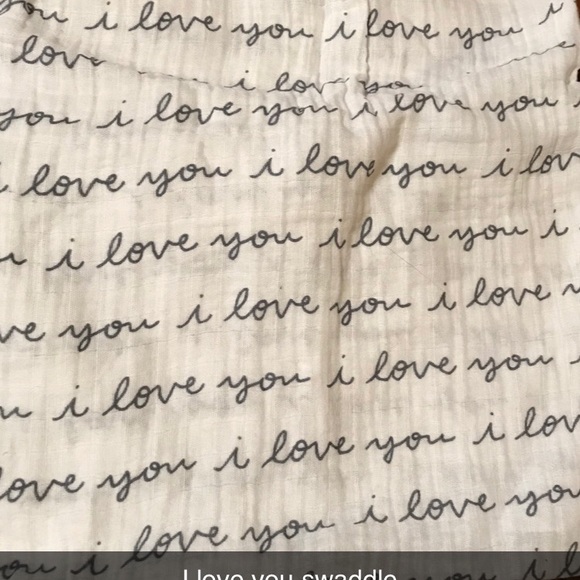 you i love you i love you i
love i love you
you i love you i love you
i love you i love you i lov
u i love you i love you i
ve you i love you i love y
u i love you i love you
love you i love you i lov
ou i love you i love you
you i l
I love you swaddle